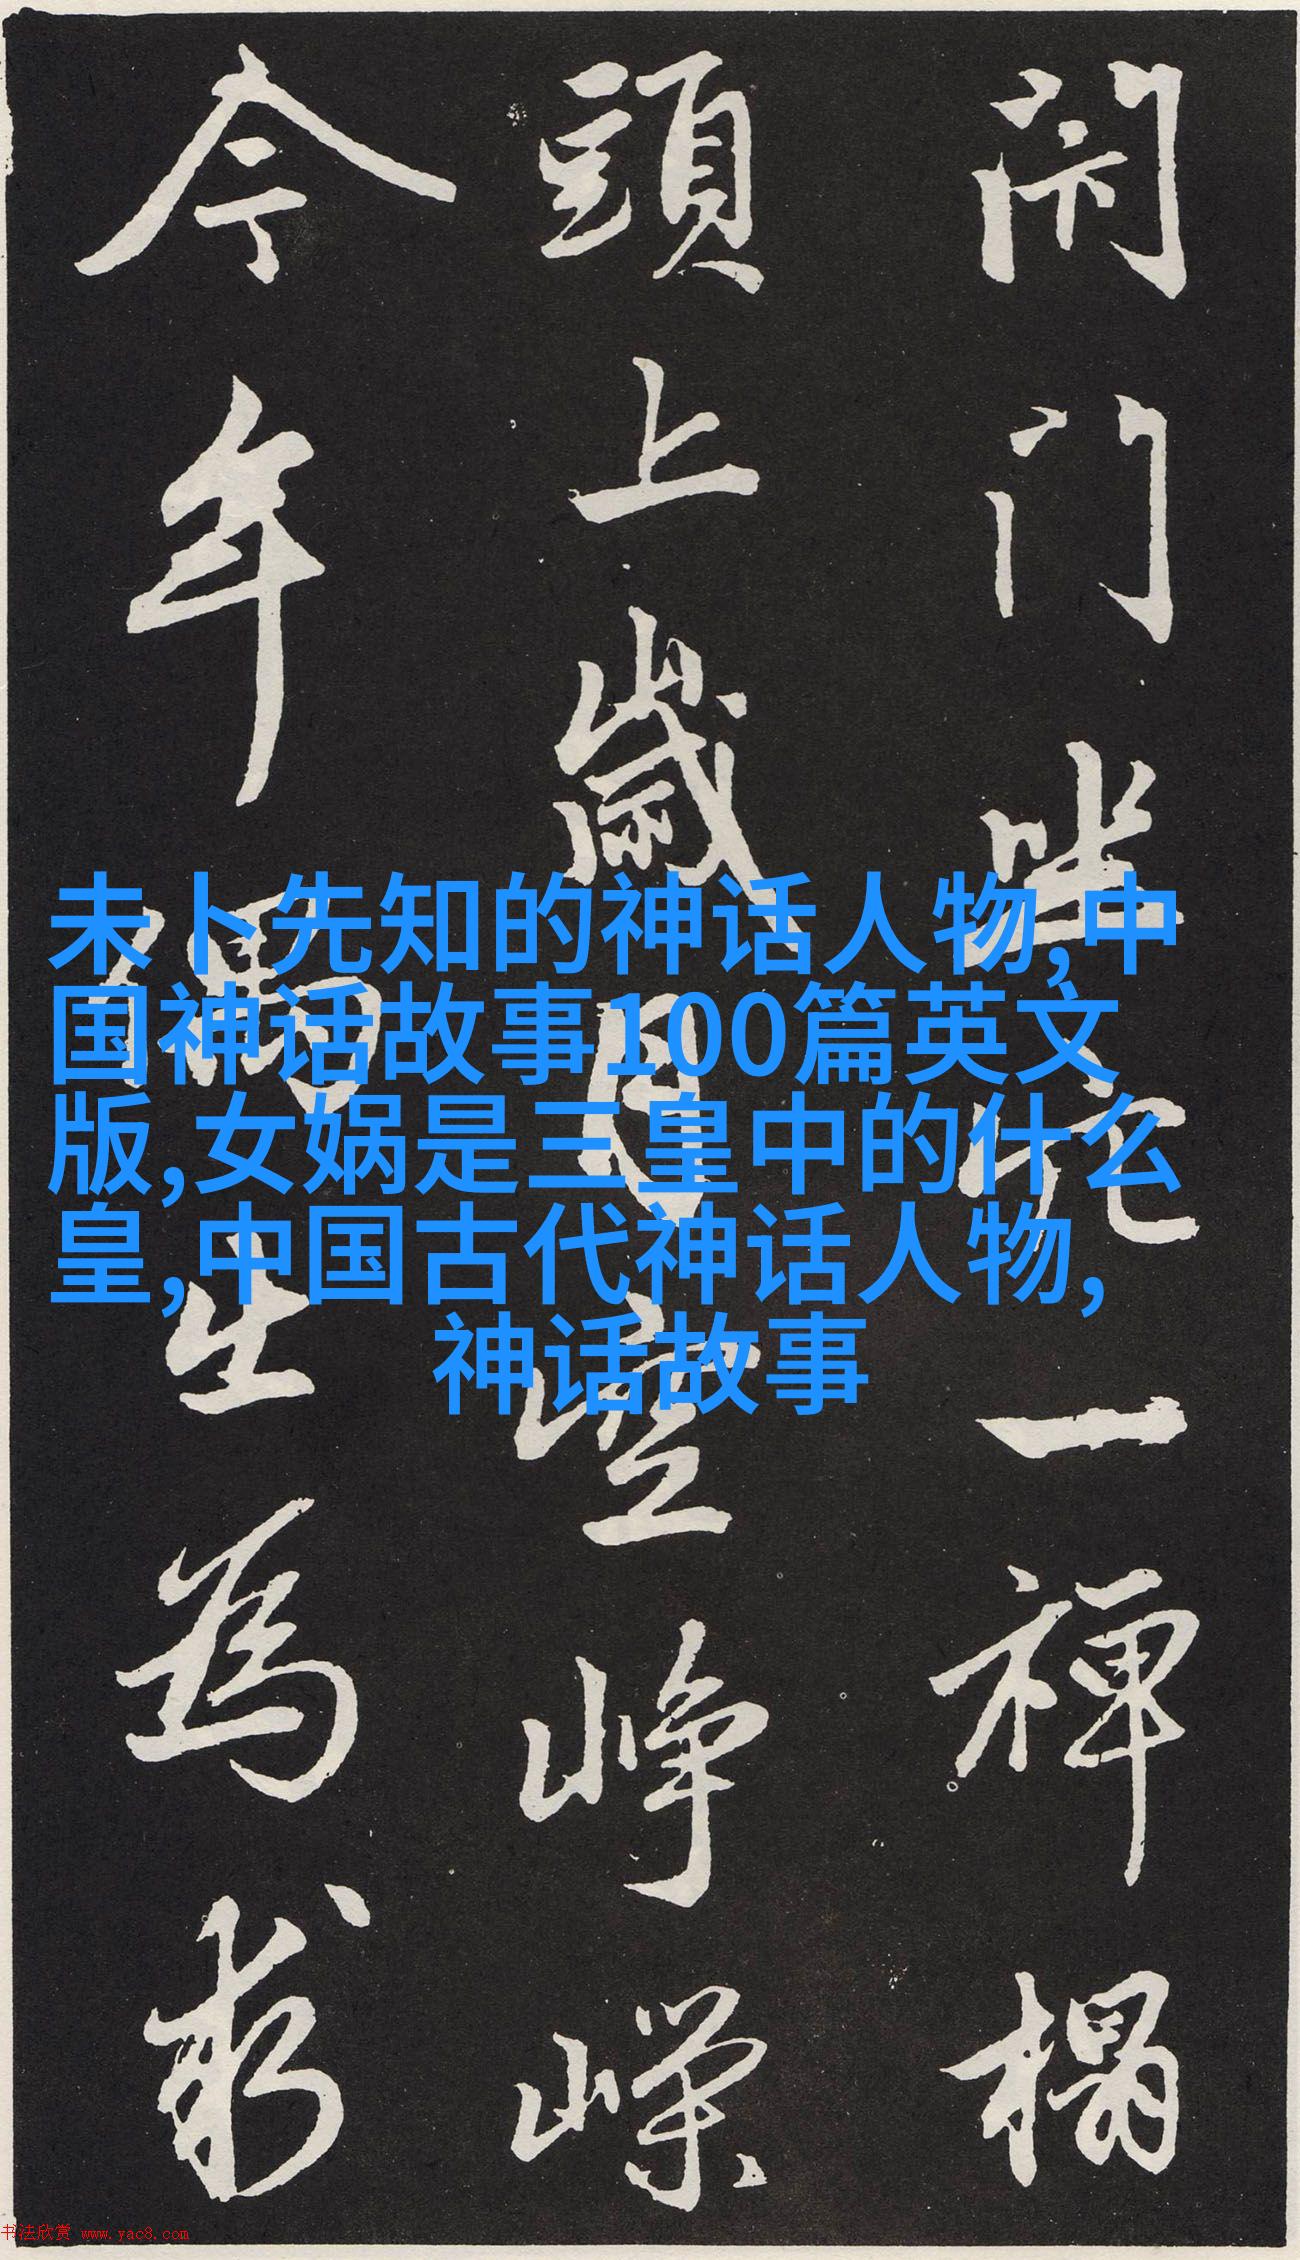 闭门坐穴一禪榻
頭上歲月空崢嶸
今年偶出為求
未卜先知的神话人物,中
国神话故事100篇英文
版,女娲是三皇中的什么
皇,中国古代神话人物,
神话故事
书法欣赏 www.yac8.com